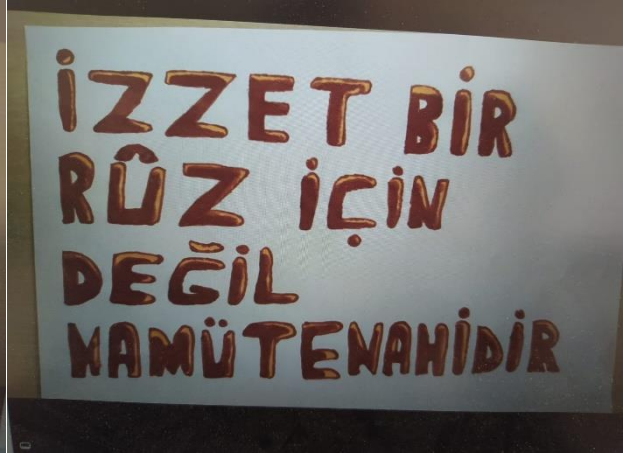 İZZET BİR
RÛZ İÇİN
DEĞİL
NAMÜTENAHİDİR